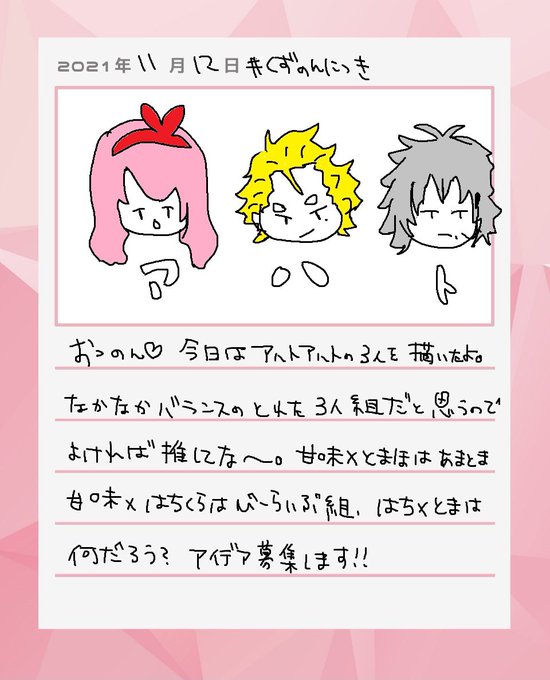 2021年11月12日 #くずのんにっき
ア ハ ト
おつのん♡ 今日はアルトアルトの3人を描いたよ。
なかなかバランスのとれた3人組だと思うので
よければ推してな〜。甘味×とまほはあまとま
甘味×はちくらはびーらいぶ組、はち×とまは
何だろう? アイデア募集します!!